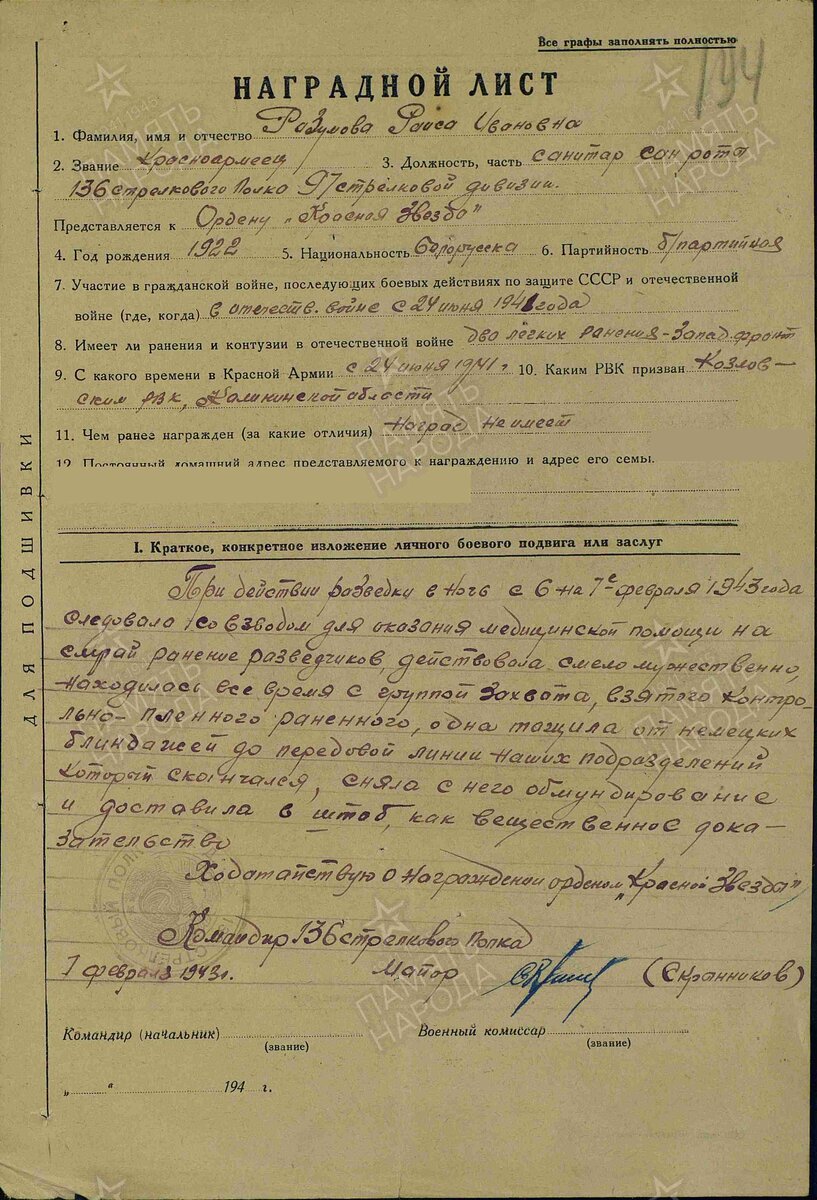 Все графы заполнять полностью
194
НАГРАДНОЙ ЛИСТ
1. Фамилия, имя и отчество Разумова Раиса Ивановна
2. Звание Красноармеец 3. Должность, часть санитар санрота
136 стрелкового Полка 97 стрелковой дивизии.
Представляется к Ордену „Красная Звезда"
4. Год рождения 1922 5. Национальность белорусска 6. Партийность б/партийная
7. Участие в гражданской войне, последующих боевых действиях по защите СССР и отечественной
войне (где, когда) в отечеств. войне с 24 июня 1941 года
8. Имеет ли ранения и контузии в отечественной войне два лёгких ранения - Запад. фронт
9. С какого времени в Красной Армии с 24 июня 1941 г. 10. Каким РВК призван Козлов-
ским РВК, Калининской области
11. Чем ранее награжден (за какие отличия) Наград не имеет
12. Постоянный домашний адрес представляемого к награждению и адрес его семьи.
I. Краткое, конкретное изложение личного боевого подвига или заслуг
При действии разведки в ночь с 6 на 7е февраля 1943 года
следовала со взводом для оказания медицинской помощи на
случай ранение разведчиков, действовала смело мужественно,
находилась все время с группой захвата, взятого контро-
льно-пленного раненного, одна тащила от немецких
блиндажей до передовой линии наших подразделений
который скончался, сняла с него обмундирование
и доставила в штаб, как вещественное дока-
зательство
Ходатайствую о награждении орденом „Красной Звезда"
Командир 136 стрелкового Полка
7 февраля 1943 г. Майор (Скранников)
Командир (начальник) Военный комиссар
(звание) (звание)
„ " 194 г.
ДЛЯ ПОДШИВКИ
ПАМЯТЬ НАРОДА